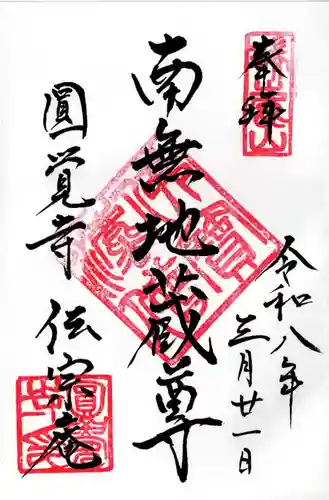 奉拝
令和八年
三月廿一日
南無地蔵尊
圓覚寺 伝宗庵